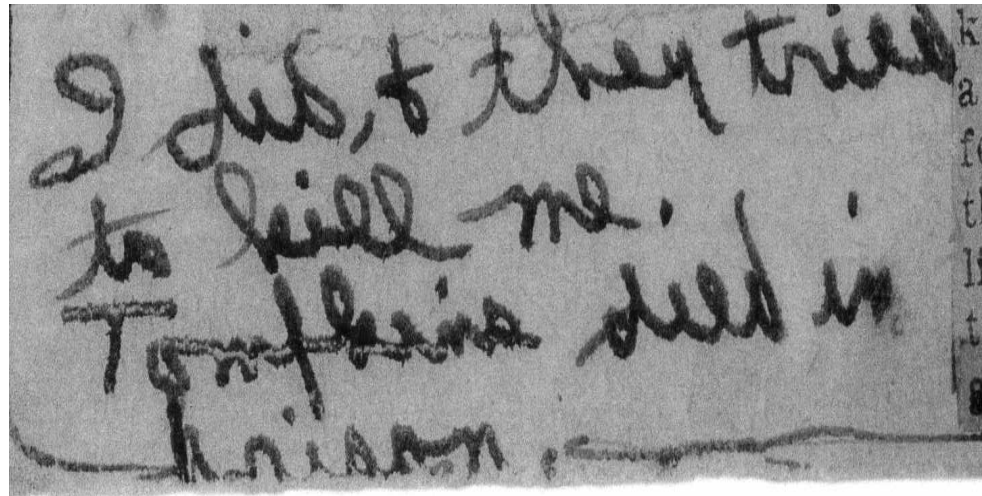 I did, & they tried
to kill me.
Tompkins died in
prison.